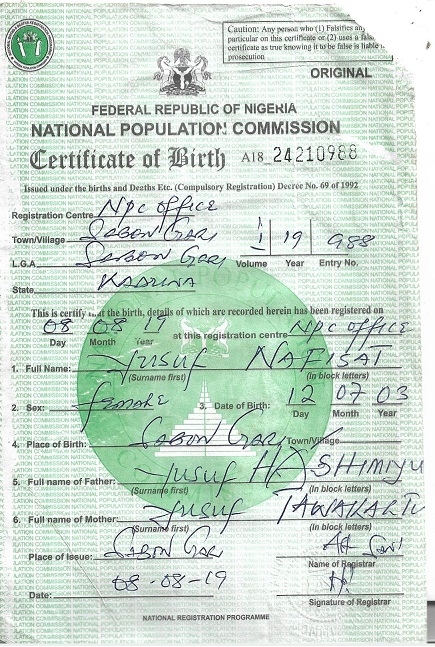 Caution: Any person who (1) Falsifies any
particular on this certificate or (2) uses a
certificate as true knowing it to be false is liable
prosecution
ORIGINAL
FEDERAL REPUBLIC OF NIGERIA
NATIONAL POPULATION COMMISSION
Certificate of Birth A18 24210988
Issued under the births and Deaths Etc. (Compulsory Registration) Decree No. 69 of 1992
Registration Centre NPC OFFICE
Town/Village SABON GARI 1 19 988
L.G.A SABON GARI Volume Year Entry No.
State KADUNA
This is certify that the birth, details of which are recorded herein has been registered on
08 08 19 at this registration centre NPC OFFICE
Day Month Year
1. Full Name: YUSUF NAFISAT
(Surname first) (In block letters)
2. Sex: female 3. Date of Birth: 12 07 03
Day Month Year
4. Place of Birth: SABON GARI Town/Village
5. Full name of Father: YUSUF HASHIMIYU
(Surname first) (In block letters)
6. Full name of Mother: YUSUF TAWAKALTU
(Surname first) (In block letters)
Place of Issue: SABON GARI
Name of Registrar
Date: 08-08-19
Signature of Registrar
NATIONAL REGISTRATION PROGRAMME